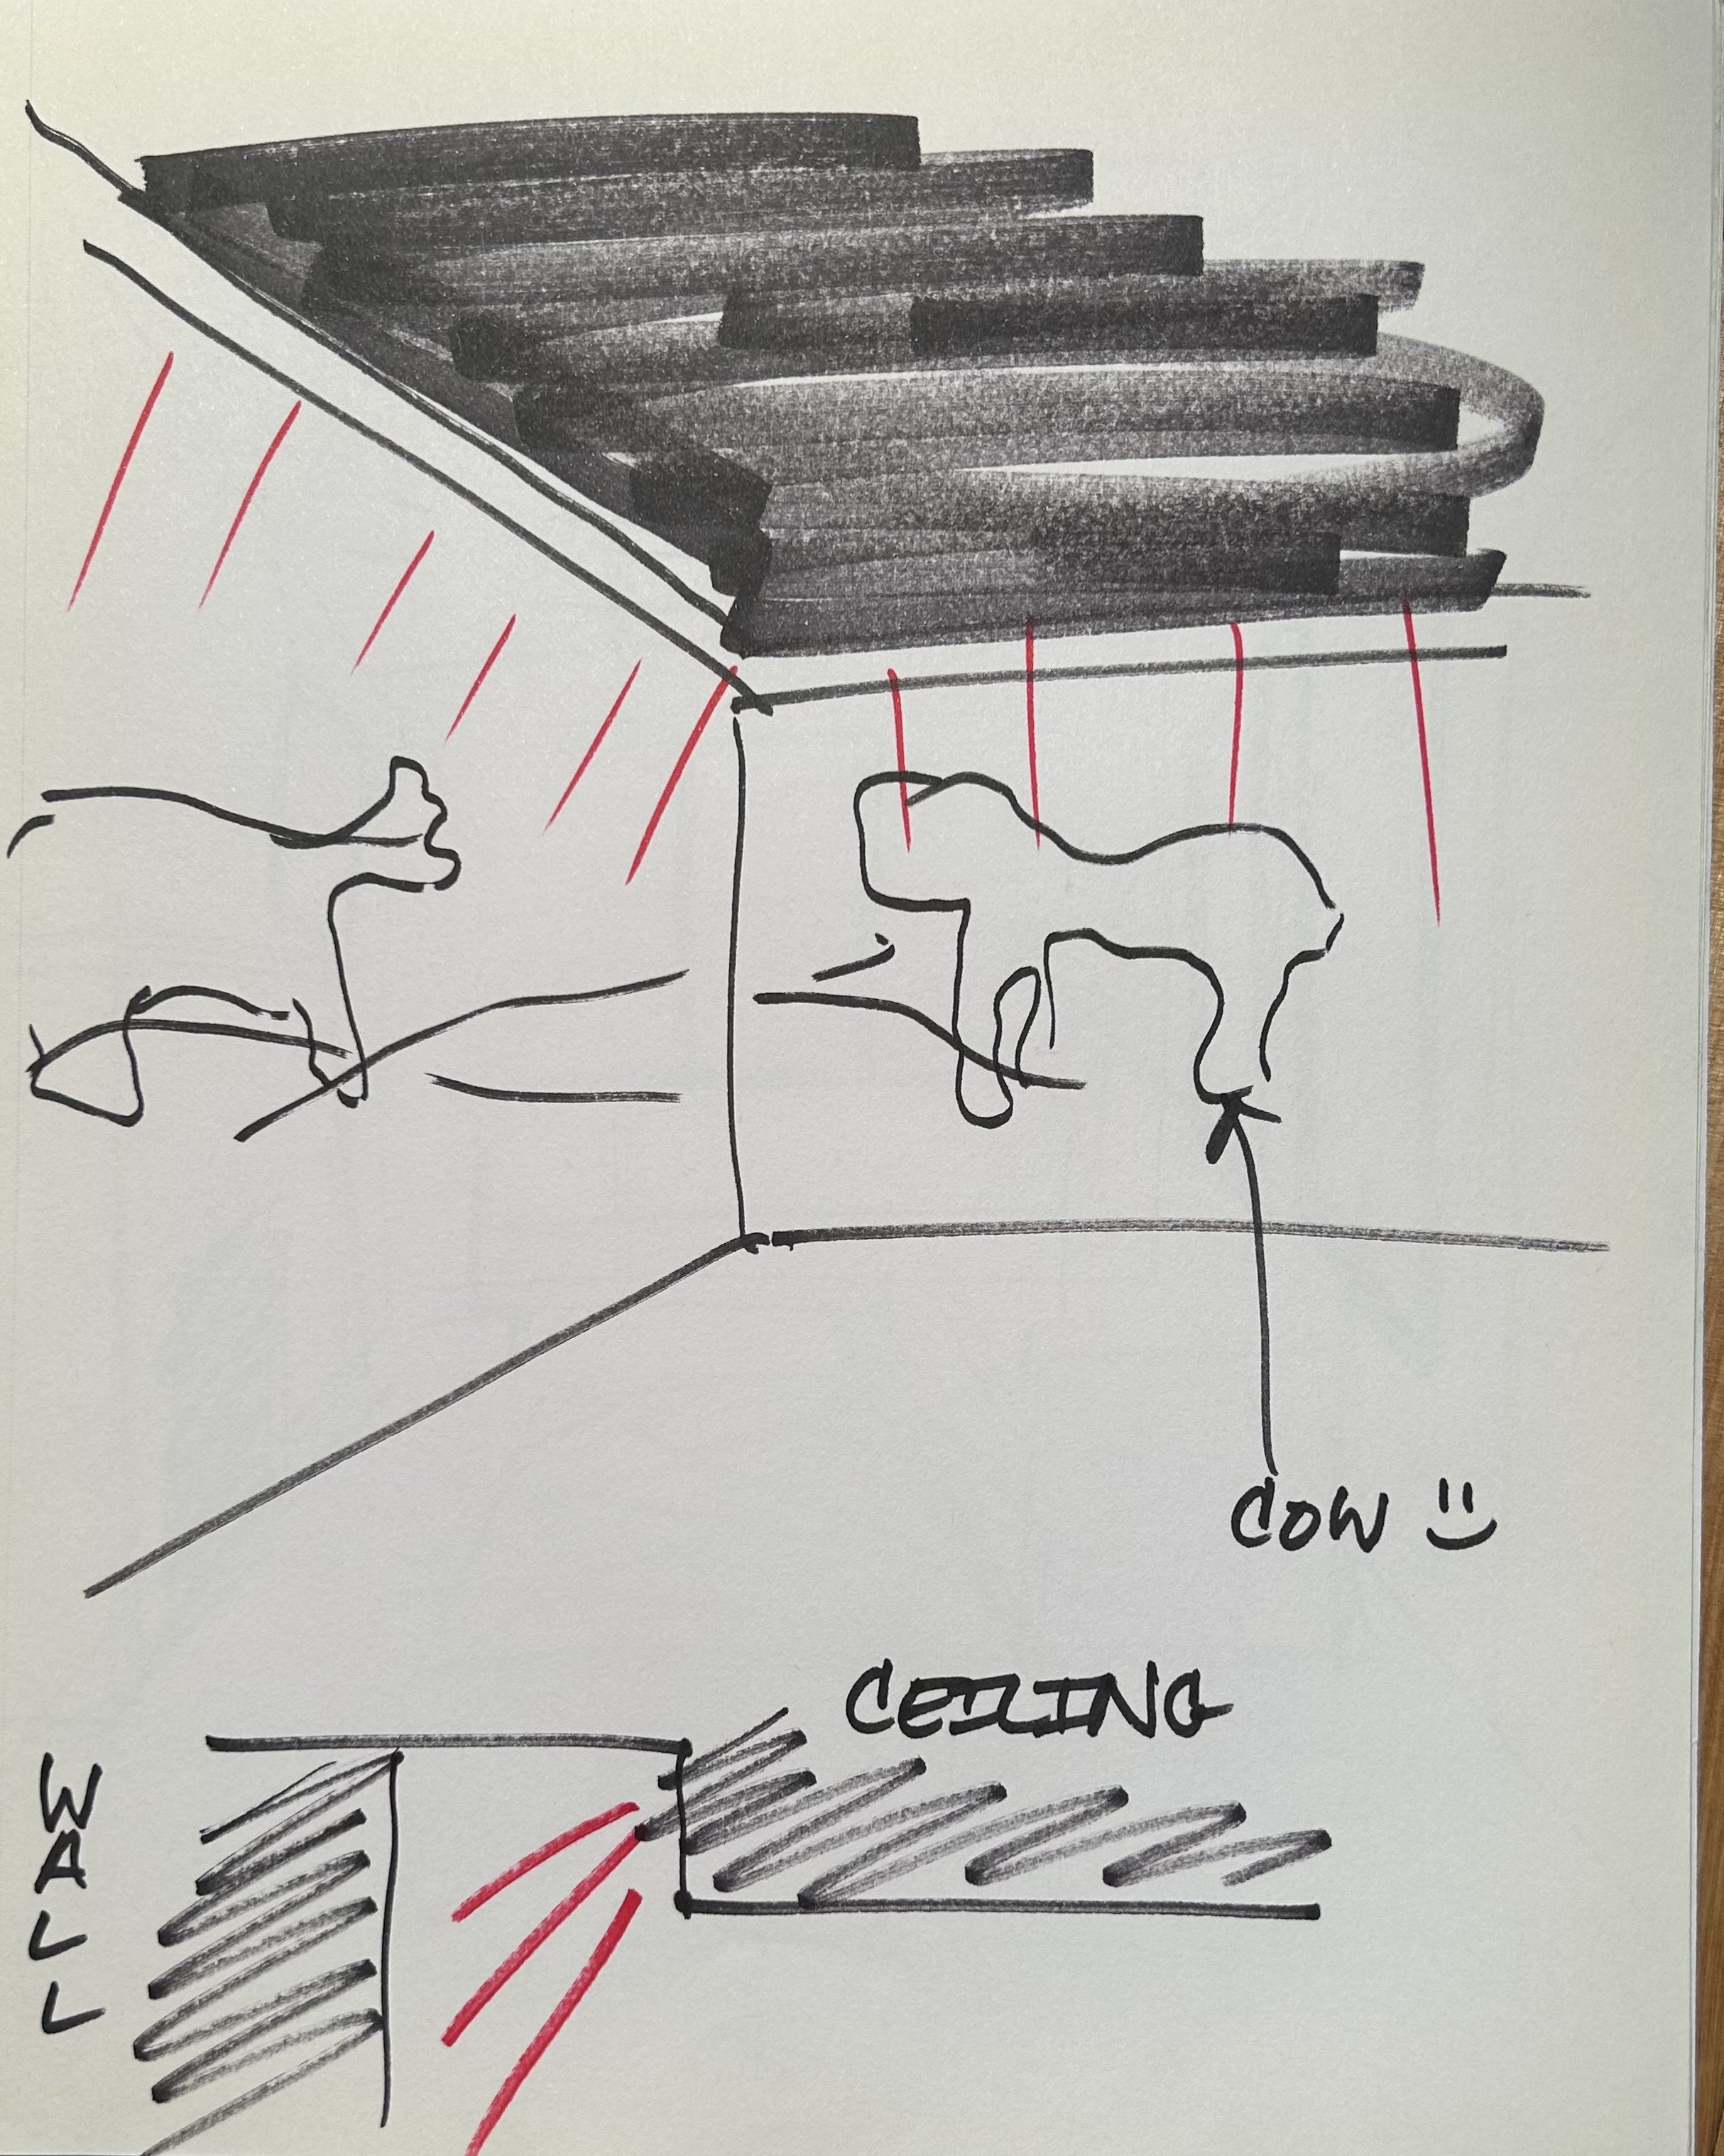 COW :)
CEILING
WALL